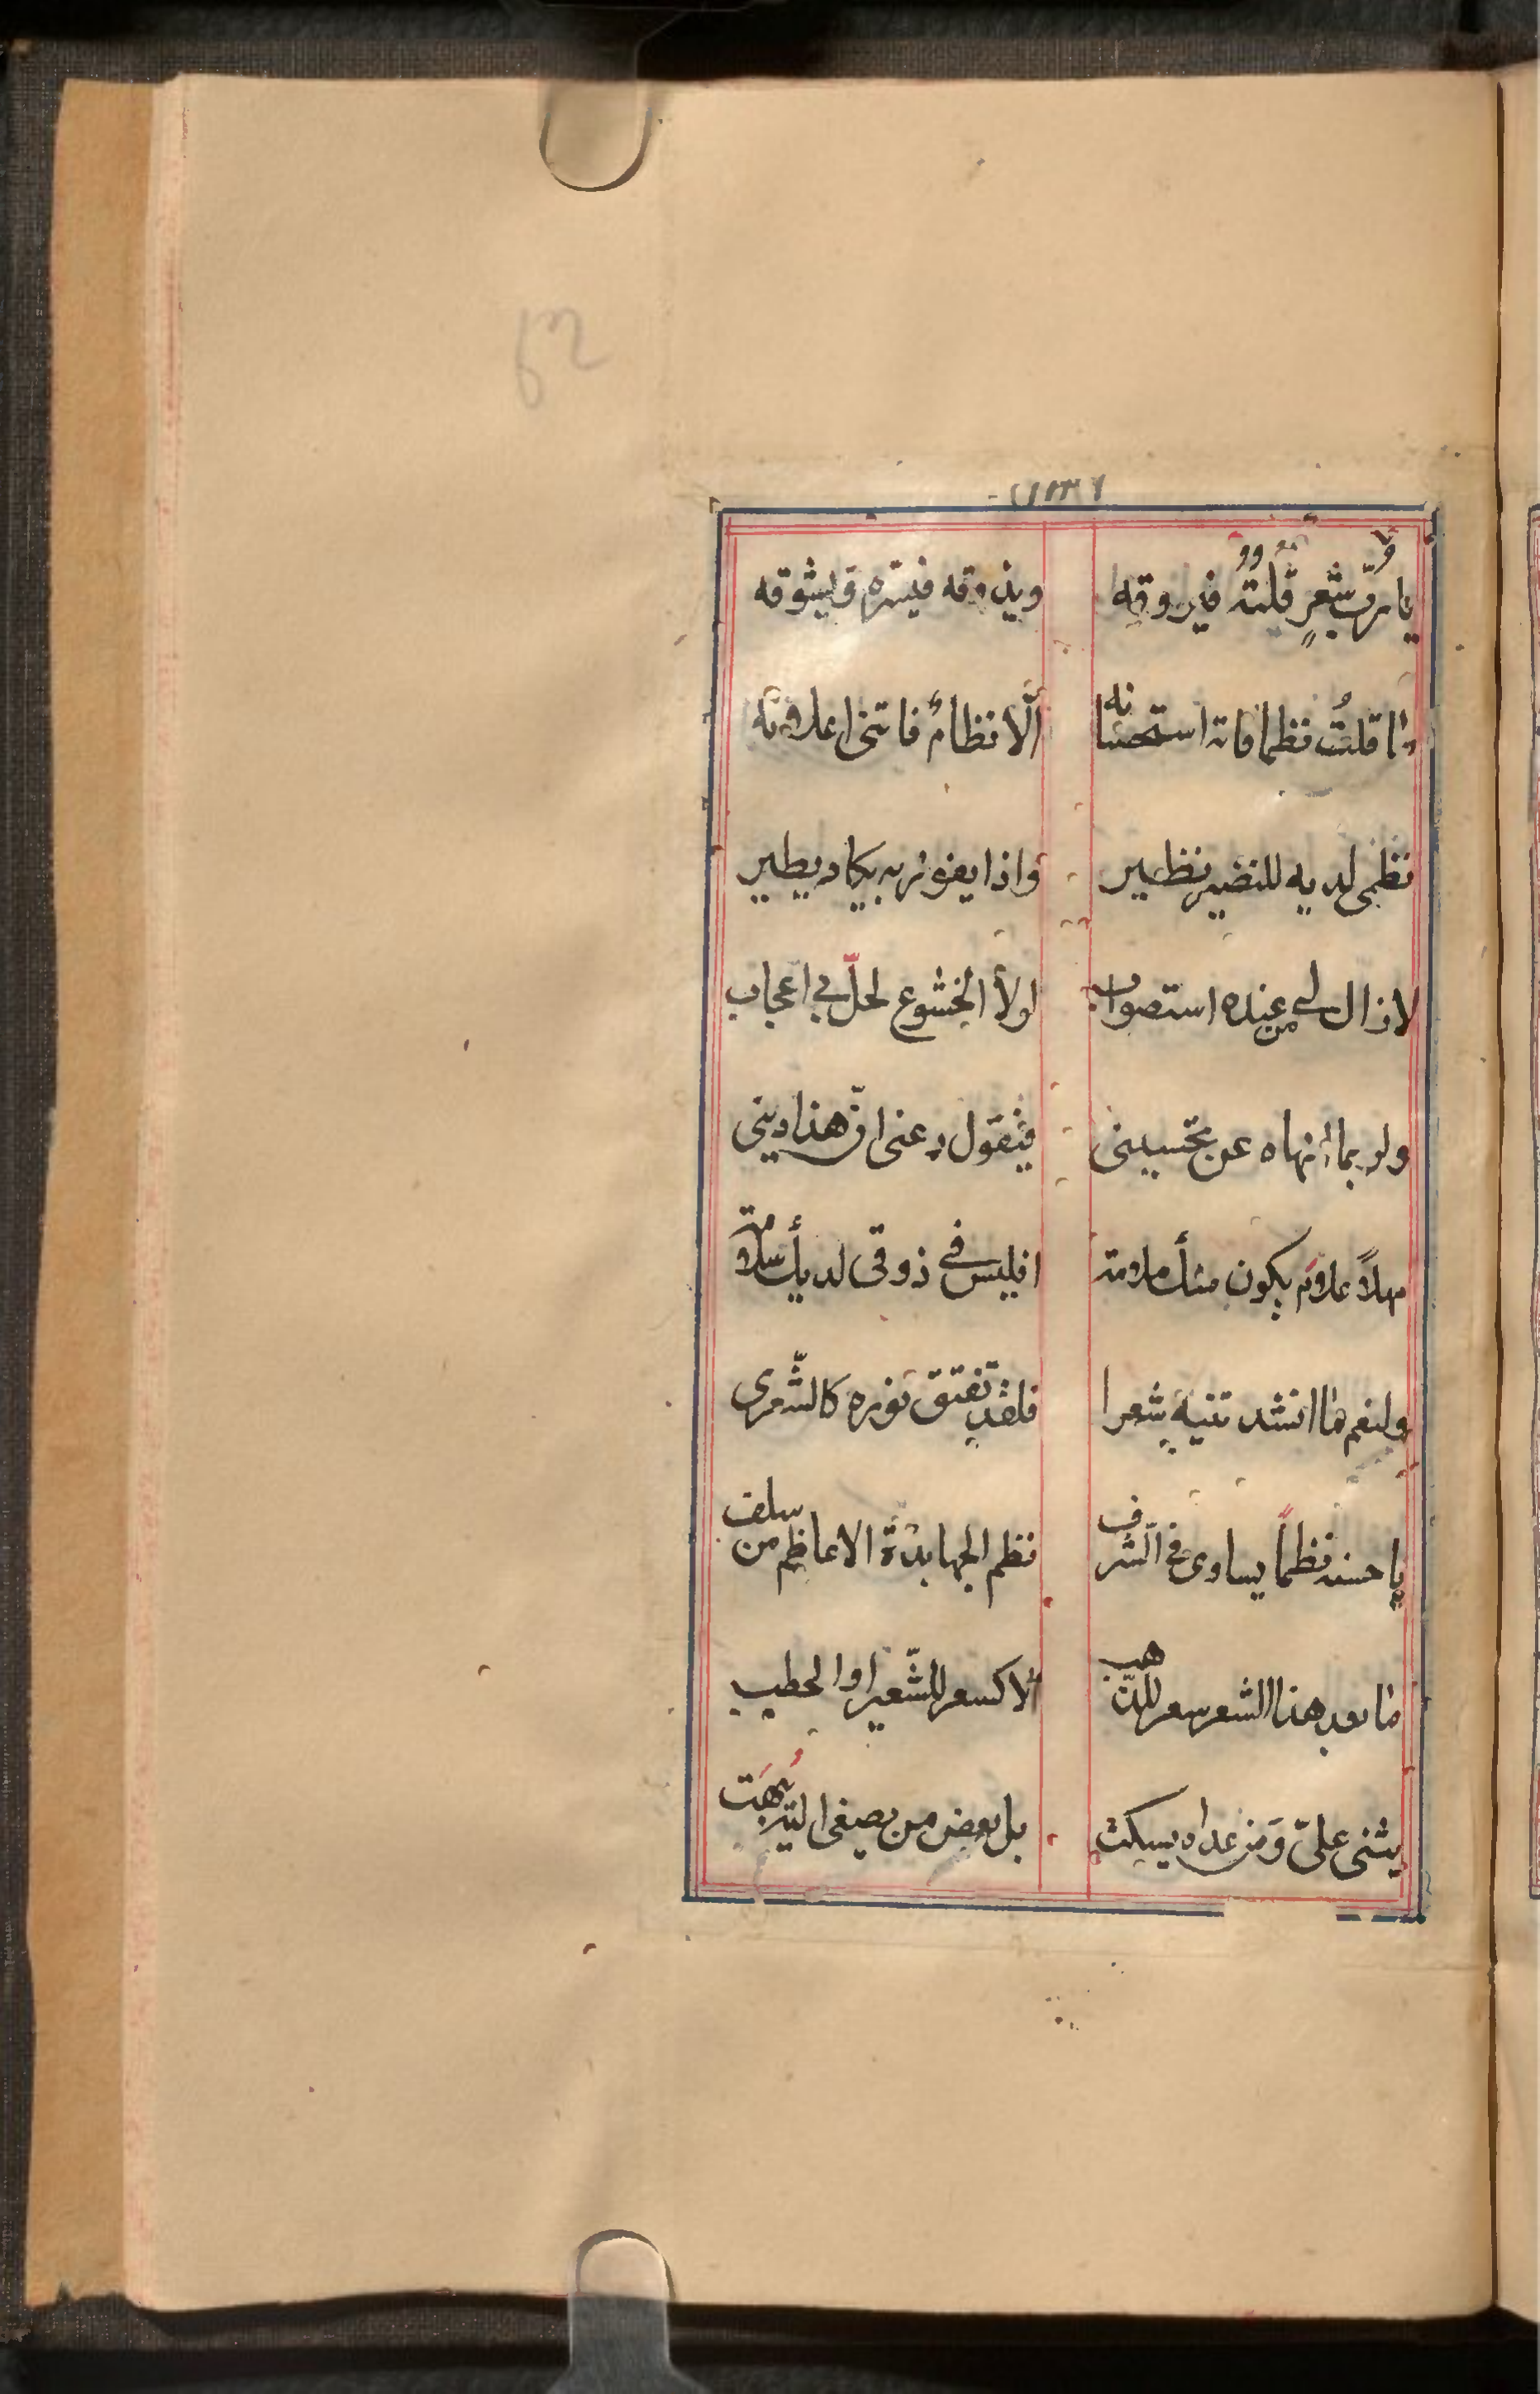 يا ربّ شعرٍ قلتُه فيروقه ويذوقه فيسّره ويشوقه
ما قلتُ نظما فاته استحسانه الّا نظامٌ فاتخذ اعلانه
نظمى لديه للنضير نظير واذا يفوز به يكاد يطير
لا زال لى من عنده استصواب لولا الخشوع لحلّ بى اعجاب
ولربما انهاه عن تحسينى فيقول دعنى انّ هذا دينى
مهلاً علام يكون منك ملامة افليس فى ذوقى لديك سلامة
ولنعم ما انشدتنيه شعرا فلقد تفتق نوره كالشّعرى
يا حسنه نظماً يساوى فى الشّرف نظم الجهابذة الاعاظم من سلف
ما بعد هذا الشعر سعر للذّهب الا كسعر للشّعير او الحطب
يثنى علىّ وَمن عداه يسكت بل بعض من يصغى اليه يُبهَت